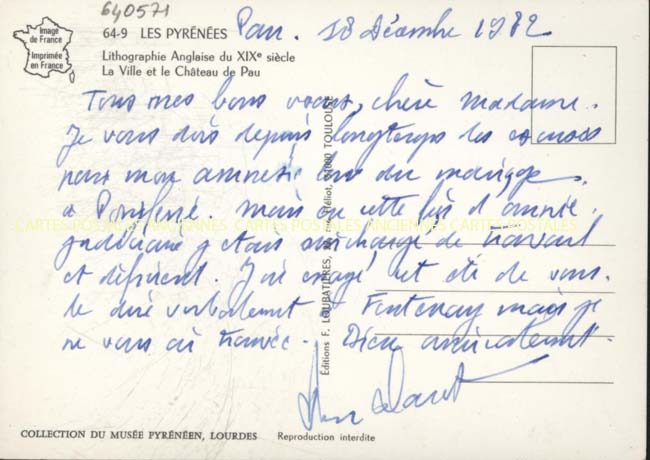 640571
Image
de France
Imprimée
en France
64-9 LES PYRÉNÉES
Pau. 18 Décembre 1982
Lithographie Anglaise du XIXe siècle
La Ville et le Château de Pau
Tous mes bons vœux, chère Madame.
Je vous dois depuis longtemps des excuses
pour mon amnésie lors du mariage
à. Mais en cette fin d'année
j'étais surchargé de travail
et déficient. J'ai essayé cet été de vous
le dire verbalement à Fontenay mais je
ne vous ai trouvée. Bien amicalement.
Éditions F. LOUBATIÈRES, 31000 TOULOUSE
CARTES POSTALES ANCIENNES CARTES POSTALES ANCIENNES CARTES POSTALES
COLLECTION DU MUSÉE PYRÉNÉEN, LOURDES Reproduction interdite